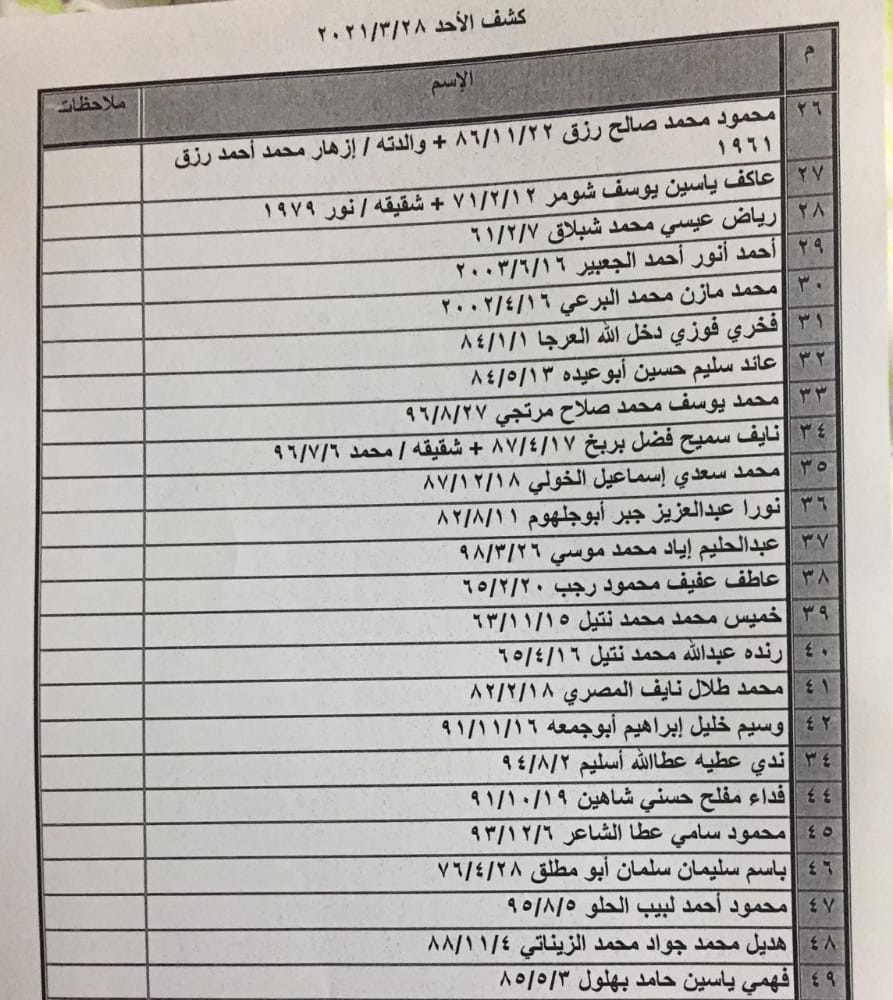 كشف الأحد ٢٠٢١/٣/٢٨
م الإسم ملاحظات
٢٦ محمود محمد صالح رزق ٨٦/١١/٢٢ + والدته / إزهار محمد أحمد رزق
١٩٦١
٢٧ عاكف ياسين يوسف شومر ٧١/٢/١٢ + شقيقه / نور ١٩٧٩
٢٨ رياض عيسي محمد شبلاق ٦١/٢/٧
٢٩ أحمد أنور أحمد الجعبير ٢٠٠٣/٦/١٦
٣٠ محمد مازن محمد البرعي ٢٠٠٢/٤/١٦
٣١ فخري فوزي دخل الله العرجا ٨٤/١/١
٣٢ عائد سليم حسين أبوعيده ٨٤/٥/١٣
٣٣ محمد يوسف محمد صلاح مرتجي ٩٦/٨/٢٧
٣٤ نايف سميح فضل بريخ ٨٧/٤/١٧ + شقيقه / محمد ٩٦/٧/٦
٣٥ محمد سعدي إسماعيل الخولي ٨٧/١٢/١٨
٣٦ نورا عبدالعزيز جبر أبوجلهوم ٨٢/٨/١١
٣٧ عبدالحليم إياد محمد موسي ٩٨/٣/٢٦
٣٨ عاطف عفيف محمود رجب ٦٥/٢/٢٠
٣٩ خميس محمد محمد نتيل ٦٣/١١/١٥
٤٠ رنده عبدالله محمد نتيل ٦٥/٤/١٦
٤١ محمد طلال نايف المصري ٨٢/٢/١٨
٤٢ وسيم خليل إبراهيم أبوجمعه ٩١/١١/١٦
٣٤ ندي عطيه عطاالله أسليم ٩٤/٨/٢
٤٤ فداء مفلح حسني شاهين ٩١/١٠/١٩
٤٥ محمود سامي عطا الشاعر ٩٣/١٢/٦
٤٦ باسم سليمان سلمان أبو مطلق ٧٦/٤/٢٨
٤٧ محمود أحمد لبيب الحلو ٩٥/٨/٥
٤٨ هديل محمد جواد محمد الزيناتي ٨٨/١١/٤
٤٩ فهمي ياسين حامد بهلول ٨٥/٥/٣